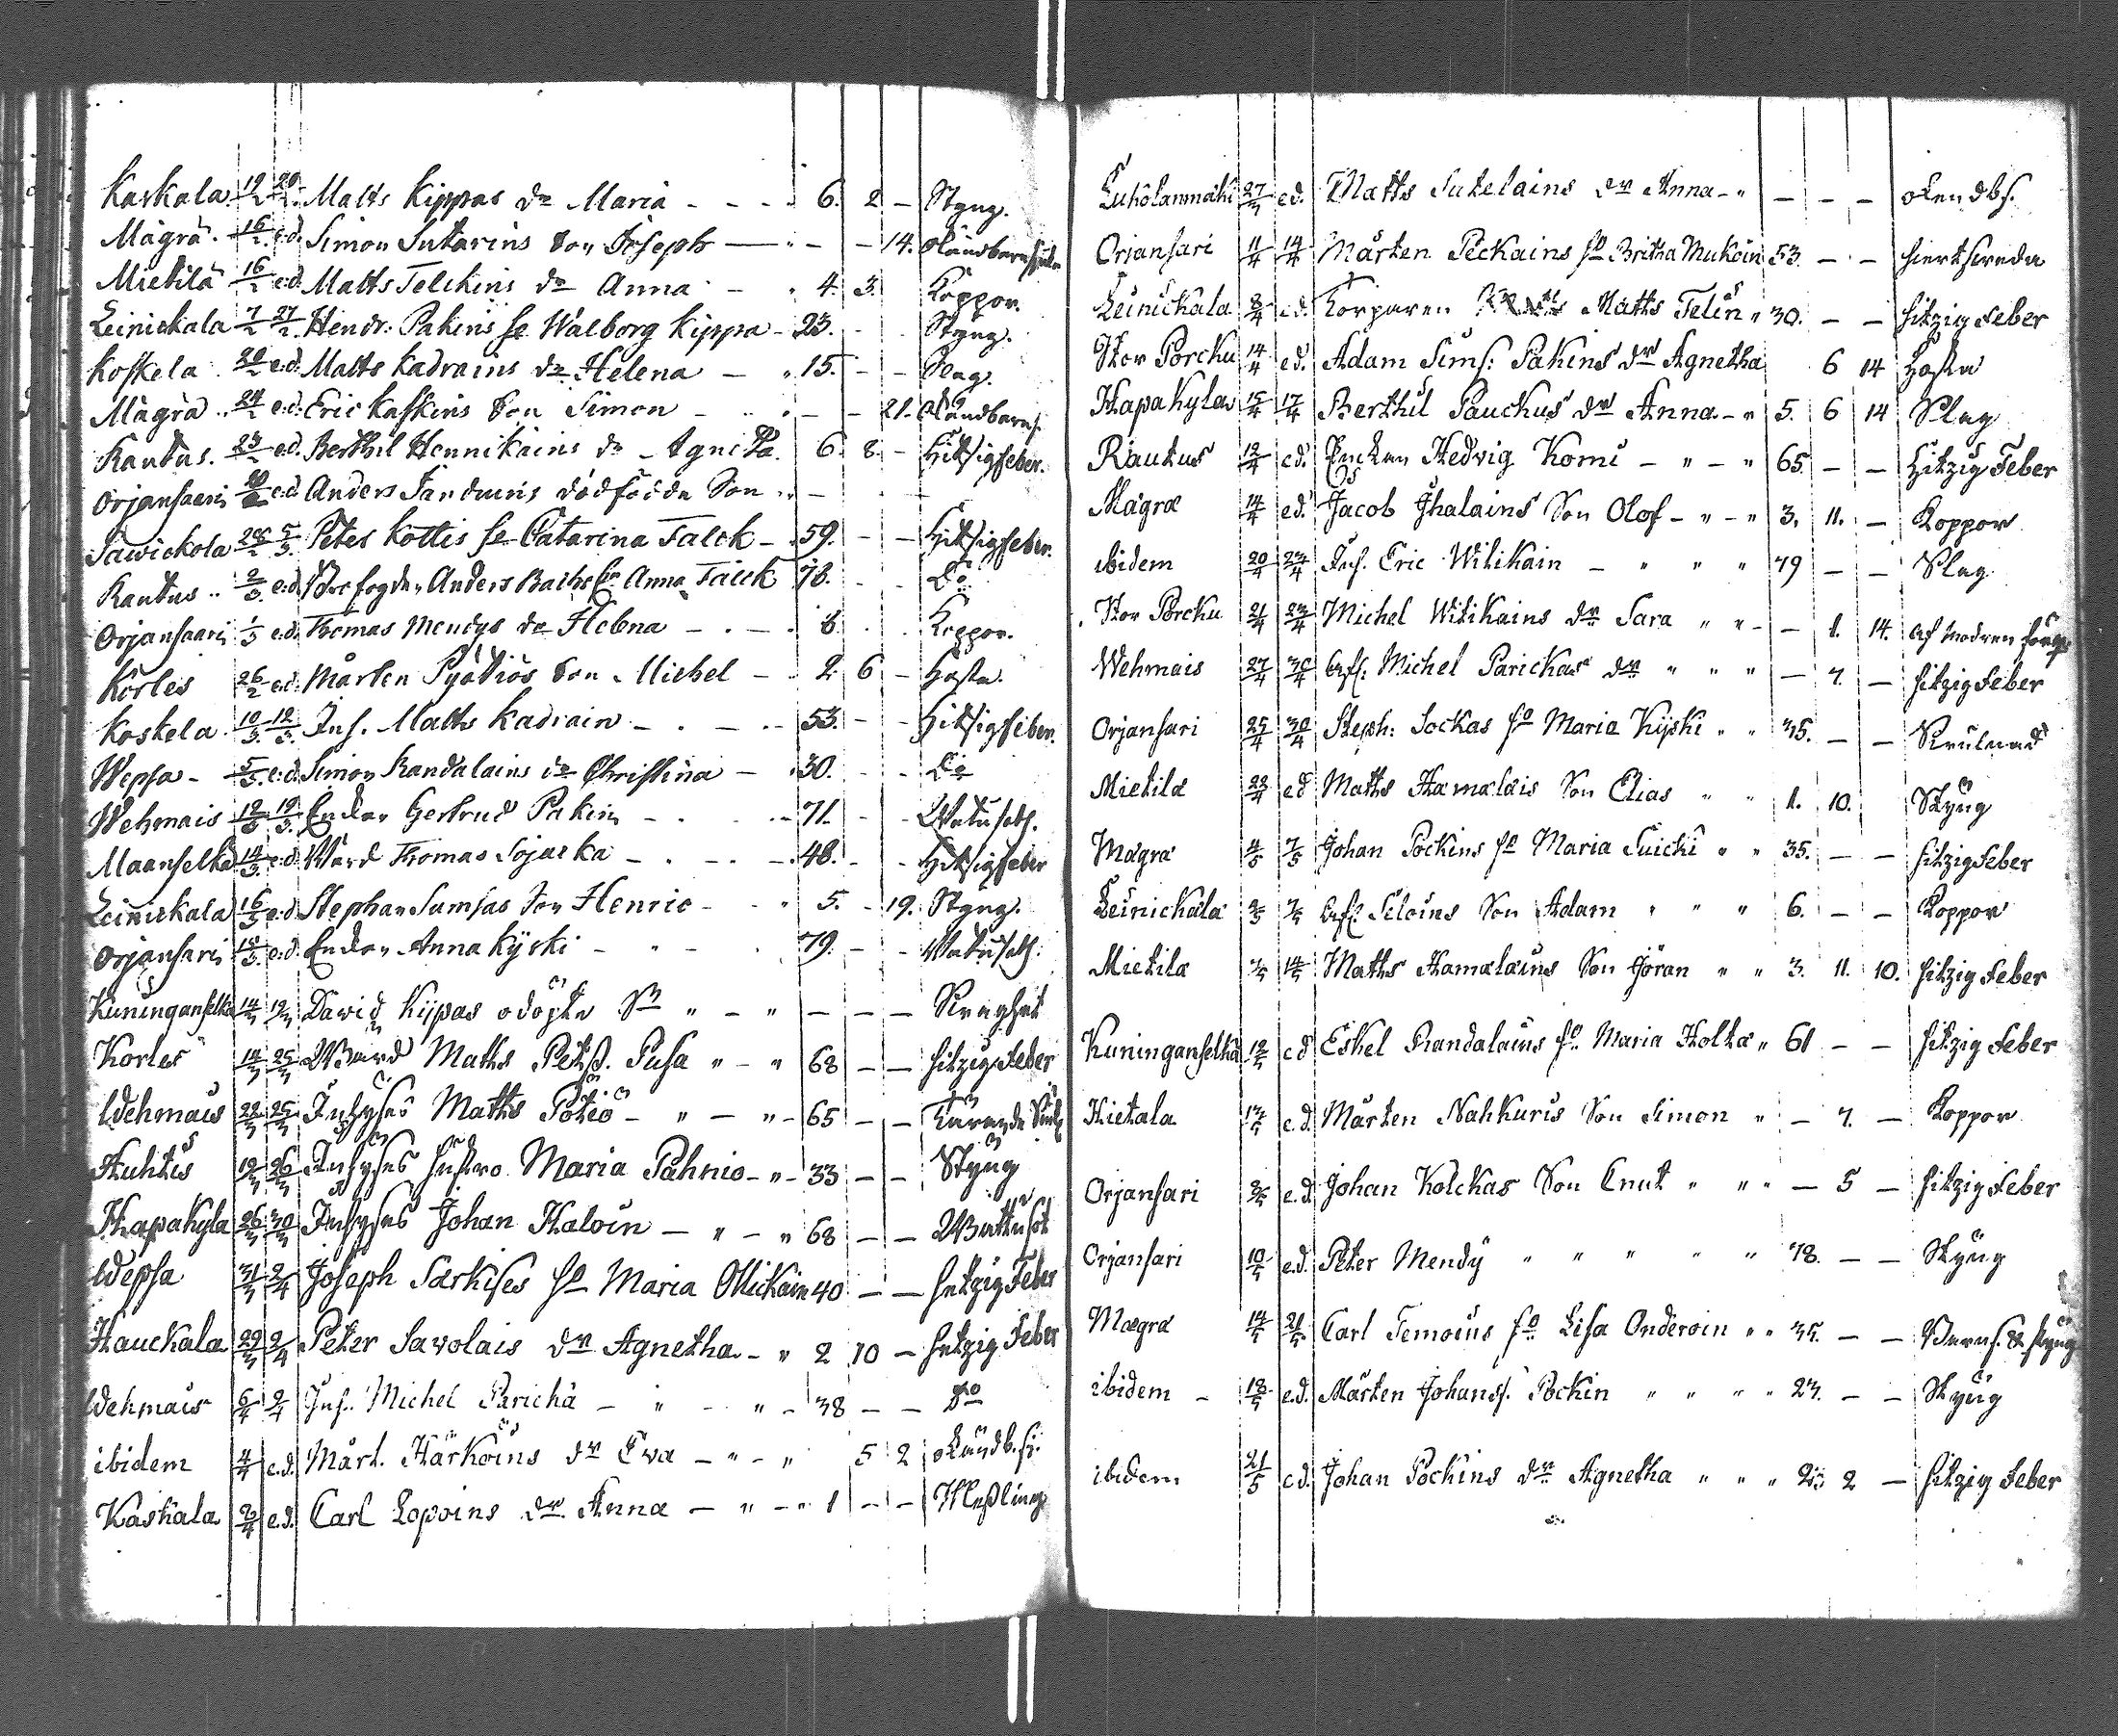 Kaskala 19/2 20/2 Matts Kippas dr Maria - - - 6. 2 - Styng.
Mägrä 16/2 e.d. Simon Sutarins Son Joseph - - 14. oländbarnsjuka
Mietilä 16/2 e.d. Matts Telckins dr Anna - 4. 3. Koppor.
Leinickala 7/2 27/2 Hendr: Pakins h. Walborg Kippa - 23. Styng.
Koskela e.d. Matts Kadrains dr Helena - 15. - - Slag.
Mägrä 24/2 e.d. Eric Kaskins Son Simon - - - 21. oländbarns.
Rautus. 23/2 e.d. Berthil Hennikäins dr Agnetha. 6. 8. - Hitsigfeber.
Orjansaari e.d. Anders dödfödde Son -
Sawickola 28/2 5/3 Peter Kottis h. Catarina Falck - 59. - - Hitsigfeber.
Rautus 2/3 e.d. Anders Anna Falck 78. - - Do
Orjansaari 1/3 e.d. Thomas Mendys dr Helena - 8. Koppor.
Korles 26/2 e.d. Mårten Pyötiös Son Michel - 2. 6 - Hosta.
Koskela 10/3 12/3 Inh. Matts Kadrain - 53. - - Hitsigfeber.
Wepsa - 5/3 e.d. Simon Randalains dr Christina - 30. Do
Wehmais 12/3 19/3 Enkan Gertrud Pakin - 71. - - Watusot.
Maanselkä 14/3 e.d. Wärd Thomas Sojacka - 48. - - Hitsigfeber
Leinickala 16/3 e.d. Stephan Sumsas Son Henric - 5. - 19. Styng.
Orjansari 18/3 e.d. Enkan Anna Kyski - 79. - - Watusot.
Kuninganselkä 14/3 19/3 Dawid Kijpas odöpte Sn " - " - - - Swaghet
Korles 14/3 25/3 Wärd Maths Petss. Pusa " - " 68 - - hitzig feber
Wehmais 22/3 25/3 Inhyses Maths Potiö - " - " - 65 - -
Huhtis 19/3 26/3 Inhyses hustro Maria Pahnio - " - 33 - - Styng
Haapakyla 26/3 30/3 Inhyses Johan Haloin - " - " 68 - - Wattusot
Wepsa 31/3 2/4 Joseph Særkises ho Maria Ollickain 40 - - hetzig Feber
Hauckala 29/3 2/4 Peter Savolais dr Agnetha - " 2 10 - hetzig Feber
Wehmais 6/4 9/4 Inh. Michel Parickä - " - " - 38 - - Do
ibidem 4/4 e.d. Mårt. Härköins dr Eva - " - " 5 2 oländb.sj.
Kaskala e.d. Carl Lopoins dr Anna - " - " 1 - - Meßling
Luholanmäki 27/3 e.d. Matts Sutelains dr Anna - " - - - oländbs.
Orjansari 11/4 14/4 Mårten Peckains ho Britha Mukoin 53 - -
Leinickala 8/4 e.d. Torparen Maths Telin " 30. - - hitzig feber
Stor Porcku 14/4 e.d. Adam Sims: Pakins dr Agnetha 6 14 Hosta
Haapakylä 15/4 17/4 Berthil Pauckus dr Anna - " 5. 6 14 Slag
Rautus 12/4 e.d. Enckan Hedvig Komi - " - " 65. - - Hitzig Feber
Mägræ 14/4 e.d. Jacob Ihalains Son Olof - " - " 3. 11. - Koppor
ibidem 20/4 23/4 Inh. Eric Wilikain - " " " 79 - - Slag
Stor Porcku 21/4 23/4 Michel Wilikains dr Sara " " - - 1. 14. af modren
Wehmais 27/4 30/4 Michel Parickas dr " " " - 7. - hitzig feber
Orjansari 25/4 30/4 Steph: Sockas ho Maria Kyski " " 35. - -
Mietilä 22/4 e.d Maths Hamaläis Son Elias " " 1. 10. Styng
Mägra 4/5 7/5 Johan Pockins ho Maria Suicki " " 35. - - hitzig feber
Leinickala Siloins Son Adam " " " 6. - - Koppor
Mietilæ 7/5 14/5 Maths Hamalains Son Jöran " " 3. 11. 10. hitzig Feber
Kuninganselkä 12/5 e.d Eskel Randalains ho Maria Holta " 61 - - hitzig feber
Hietala e.d. Mårten Nahkuris Son Simon " - 7. - Koppor
Orjansari e.d. Johan Kolckas Son Cnut " " " - 5 - hitzig feber
Orjansari 10/5 e.d. Peter Mendy " " " " " 78. - - Styng
Mægræ 14/5 21/5 Carl Temoins ho Lisa Onderoin " " 35. - - Barns. & styng
ibidem - 18/5 e.d. Mårten Johanss. Pockin " " " " 23. - - Styng
ibidem 21/5 e.d. Johan Pockins dr Agnetha " " " 2 - hitzig feber